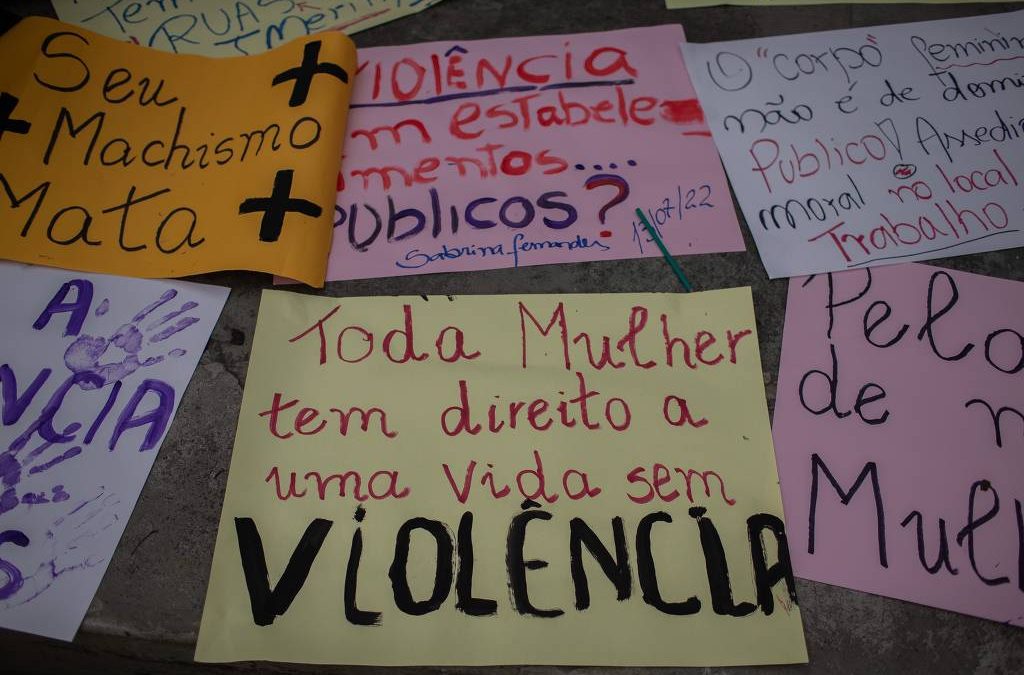 Tem
RUAS
Seu
Machismo
Mata
VIOLÊNCIA
em estabele
cimentos....
PÚBLICOS?
Sabrina fernandes 13/07/22
O "corpo" feminin
não é de domi
Publico! Assedi
moral no local
Trabalho
A
NCIA
S
Toda Mulher
tem direito a
uma vida sem
VIOLÊNCIA
Pelo
de m
Mul